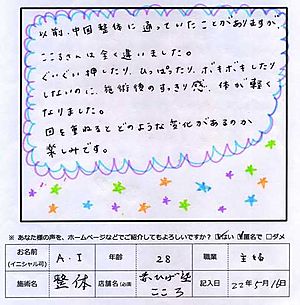 以前、中国整体に通っていたことがありますが、
こころさんは全く違いました。
ぐいぐい押したり、ひっぱったり、ボキボキしたり
しないのに、施術後のすっきり感、体が軽く
なりました。
回を重ねるとどのような変化があるのか
楽しみです。
※ あなた様の声を、ホームページなどでご紹介してもよろしいですか？ ☑はい ☑匿名で □ダメ
お名前 (イニシャル可) A・I 年齢 28 職業 主婦
施術名 整体 店舗名(必須) 赤ひげ堂 こころ 記入日 22年 月16日